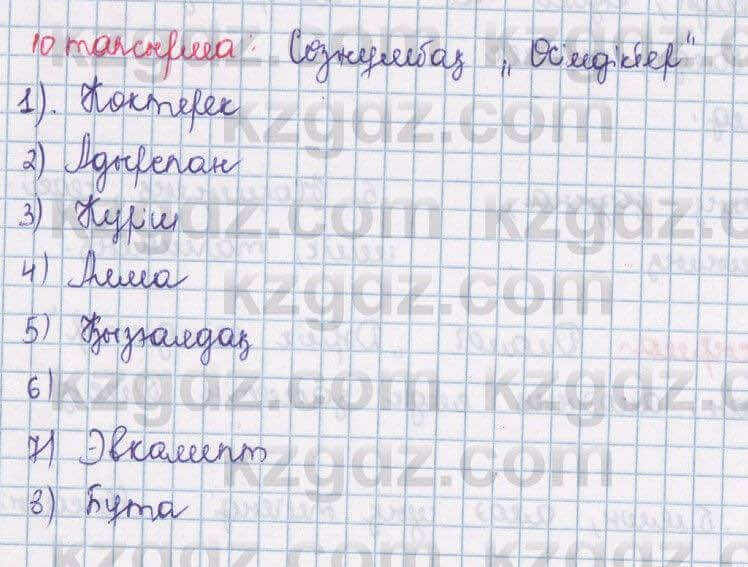 10 тапсырма: Сөзжұмбақ „Өсімдіктер"
1). Көктерек
2) Адыраспан
3) Күріш
4) Алма
5) Қызғалдақ
6)
7) Эвкалипт
8) Бұта
kzgdz.com